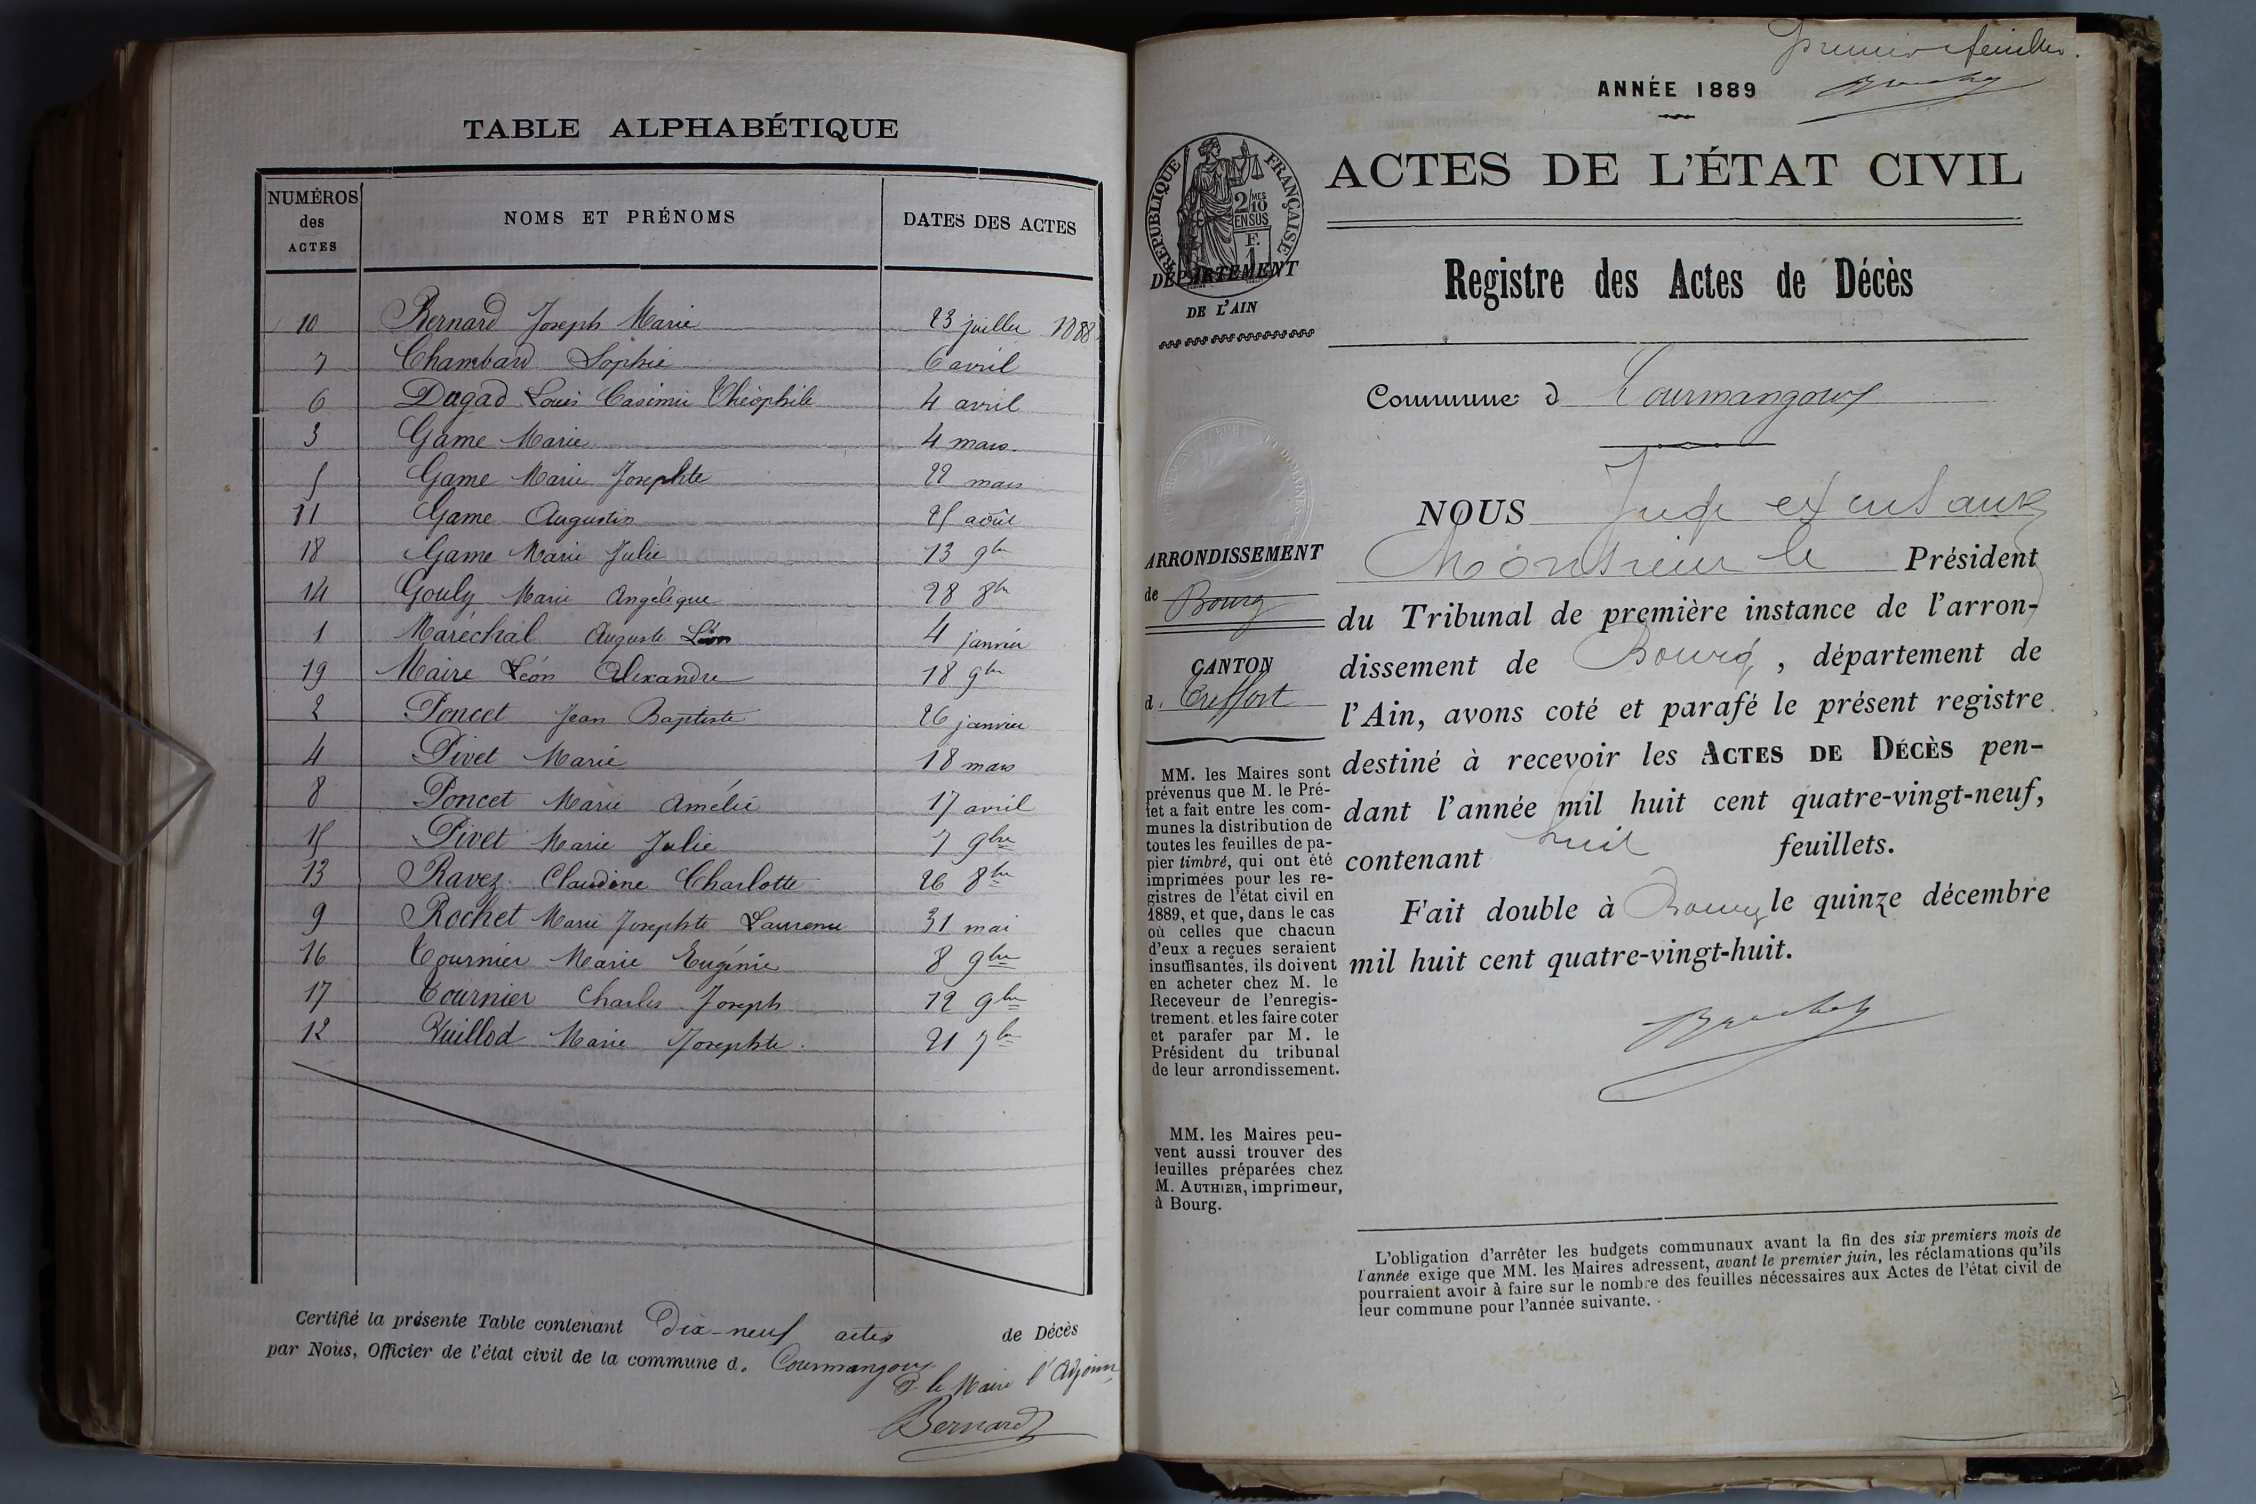 TABLE ALPHABÉTIQUE
NUMÉROS des ACTES NOMS ET PRÉNOMS DATES DES ACTES
10 Bernard Joseph Marie 23 juillet 1888
7 Chambard Sophie 6 avril
6 Dugad Louis Casimir Théophile 4 avril
3 Game Marie 4 mars.
5 Game Marie Josephte 22 mars
11 Game Augustin 25 août
18 Game Marie Julie 13 9bre
14 Gouly Marie Angélique 28 8bre
1 Maréchal Auguste Léon 4 janvier
19 Maire Léon Alexandre 18 9bre
2 Poncet Jean Baptiste 26 janvier
4 Pivet Marie 18 mars
8 Poncet Marie Amélie 17 avril
15 Pivet Marie Julie 7 9bre
13 Ravez Claudine Charlotte 26 8bre
9 Rochet Marie Josephte Laurence 31 mai
16 Tournier Marie Eugénie 8 9bre
17 Tournier Charles Joseph 12 9bre
12 Vuillod Marie Josephte. 21 7bre
Certifié la présente Table contenant Dix-neuf actes de Décès
par Nous, Officier de l'état civil de la commune d. Courmangoux
P. le Maire l'Adjoint
Bernard
Premier feuillet.
ANNÉE 1889
RÉPUBLIQUE FRANÇAISE
2/10 MES
EN SUS
F.
1
DÉPARTEMENT
DE L'AIN
ACTES DE L'ÉTAT CIVIL
Registre des Actes de Décès
Commune d Courmangoux
ARRONDISSEMENT
de Bourg
CANTON
d. Treffort
MM. les Maires sont
prévenus que M. le Pré-
fet a fait entre les com-
munes la distribution de
toutes les feuilles de pa-
pier timbré, qui ont été
imprimées pour les re-
gistres de l'état civil en
1889, et que, dans le cas
où celles que chacun
d'eux a reçues seraient
insuffisantes, ils doivent
en acheter chez M. le
Receveur de l'enregis-
trement et les faire coter
et parafer par M. le
Président du tribunal
de leur arrondissement.
MM. les Maires peu-
vent aussi trouver des
feuilles préparées chez
M. AUTHIER, imprimeur,
à Bourg.
NOUS Juge
Monsieur le Président
du Tribunal de première instance de l'arron-
dissement de Bourg, département de
l'Ain, avons coté et parafé le présent registre
destiné à recevoir les ACTES DE DÉCÈS pen-
dant l'année mil huit cent quatre-vingt-neuf,
contenant huit feuillets.
Fait double à Bourg le quinze décembre
mil huit cent quatre-vingt-huit.
L'obligation d'arrêter les budgets communaux avant la fin des six premiers mois de
l'année exige que MM. les Maires adressent, avant le premier juin, les réclamations qu'ils
pourraient avoir à faire sur le nombre des feuilles nécessaires aux Actes de l'état civil de
leur commune pour l'année suivante.